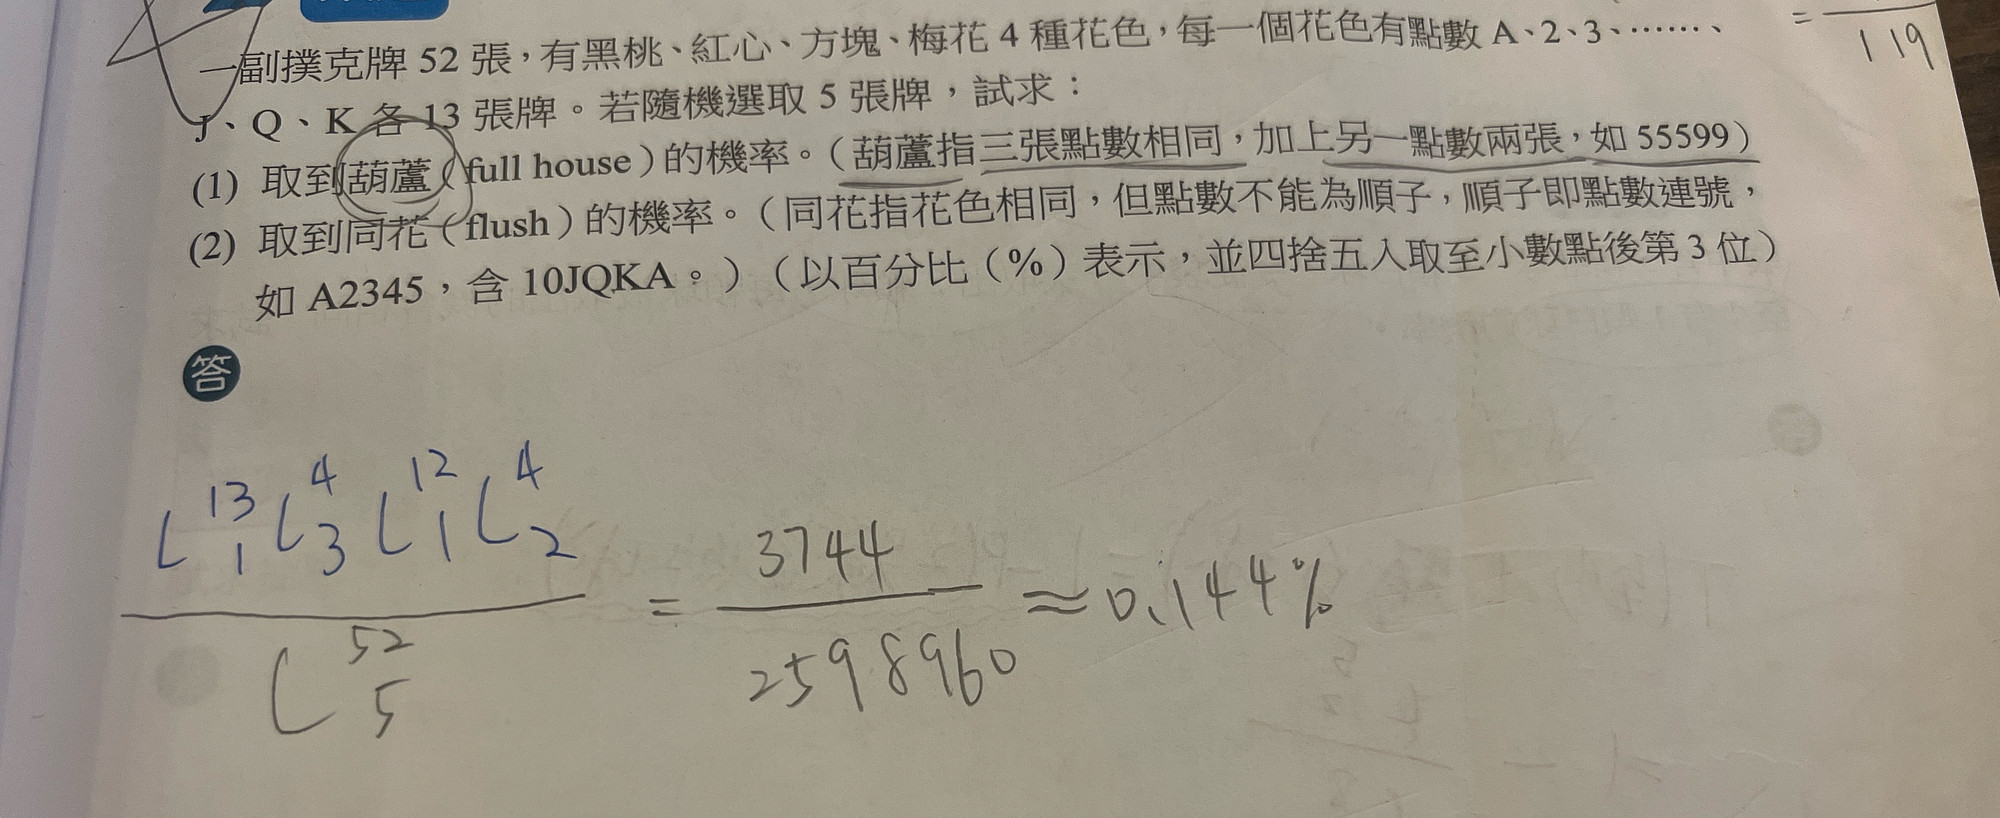 一副撲克牌 52 張，有黑桃、紅心、方塊、梅花 4 種花色，每一個花色有點數 A、2、3、……、
J、Q、K 各 13 張牌。若隨機選取 5 張牌，試求：
(1) 取到葫蘆（full house）的機率。（葫蘆指三張點數相同，加上另一點數兩張，如 55599）
(2) 取到同花（flush）的機率。（同花指花色相同，但點數不能為順子，順子即點數連號，
如 A2345，含 10JQKA。）（以百分比（%）表示，並四捨五入取至小數點後第 3 位）
=
119
答
C 13 1 C 4 3 C 12 1 C 4 2
C 52 5
= 3744
2598960
≈ 0.144%